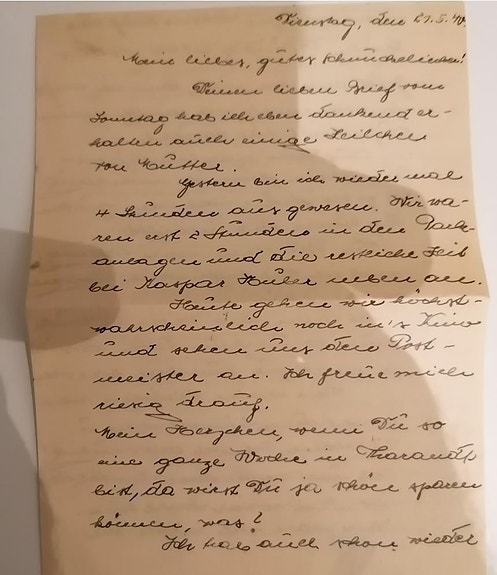 Dienstag, den 21.5.'40.
Mein liebes, gutes
Deinen lieben Brief vom
Sonntag hab ich eben dankend er-
halten auch einige Zeilchen
von Mutter.
Gestern bin ich wieder mal
4 Stunden aus gewesen. Wir wa-
ren erst 2 Stunden in den Park-
anlagen und die restliche Zeit
bei Kaspar Huber neben an.
Heute gehen wir höchst-
wahrscheinlich noch in's Kino
und sehen uns den Post-
meister an. Ich freue mich
riesig drauf.
Mein Herzchen, wenn Du so
eine ganze Woche in Tharandt
bist, da wirst Du ja schön sparen
können, was?
Ich hab auch schon wieder